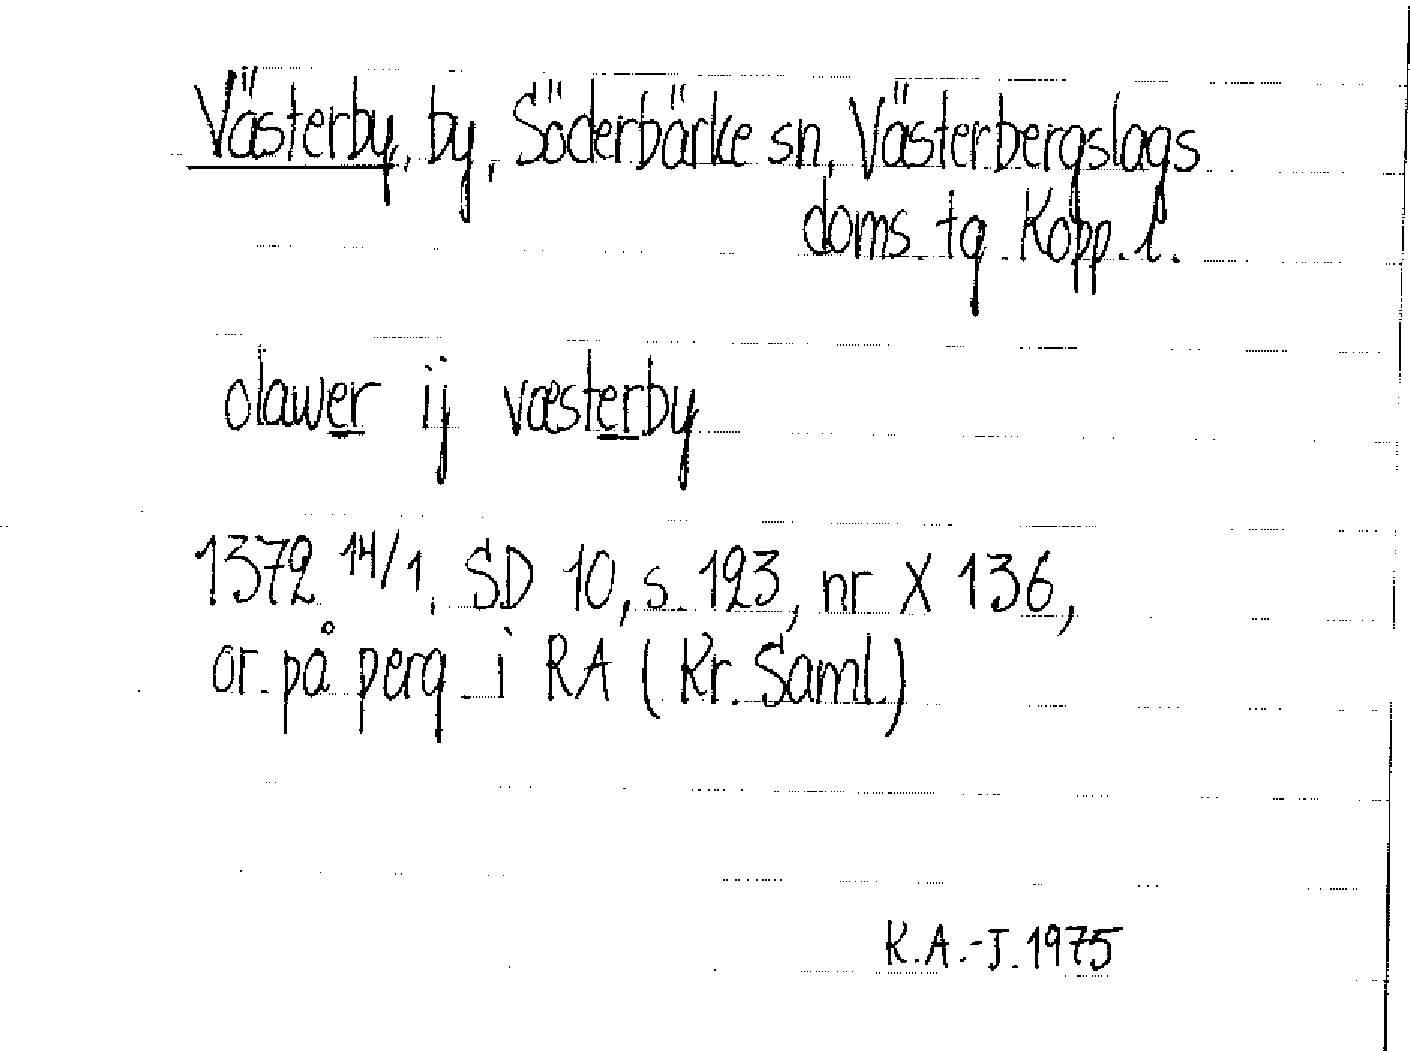 Västerby, by, Söderbärke sn, Västerbergslags
doms. tg Kopp. l.
olawer ij væsterby
1372 14/1, SD 10, s. 123, nr X 136,
or. på perg i RA (Kr. Saml.)
K.A.-J. 1975